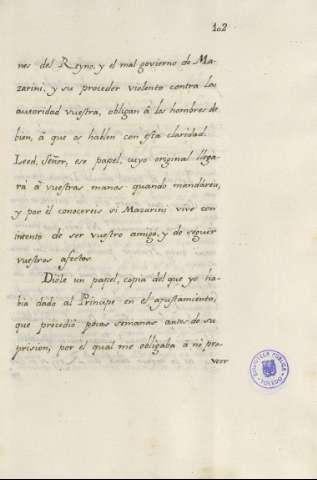 102
nes del Reyno, y el mal govierno de Ma-
zarini, y su proceder violento contra la
autoridad vuestra, obligan â los hombres de
bien, â que os hablen con esta claridad.
Leed, Señor, ese papel, cuyo original llega-
rá â vuestras manos quando mandáreis,
y por él conocereis si Mazarini vive con
intento de ser vuestro amigo, y de seguir
vuestros afectos.
Diôle un papel, copia del que yo ha-
bia dado al Príncipe en el ajustamiento,
que precediô pocas semanas antes de su
prision, por el qual me obligaba â no pro-
veer
BIBLIOTECA PÚBLICA
TOLEDO